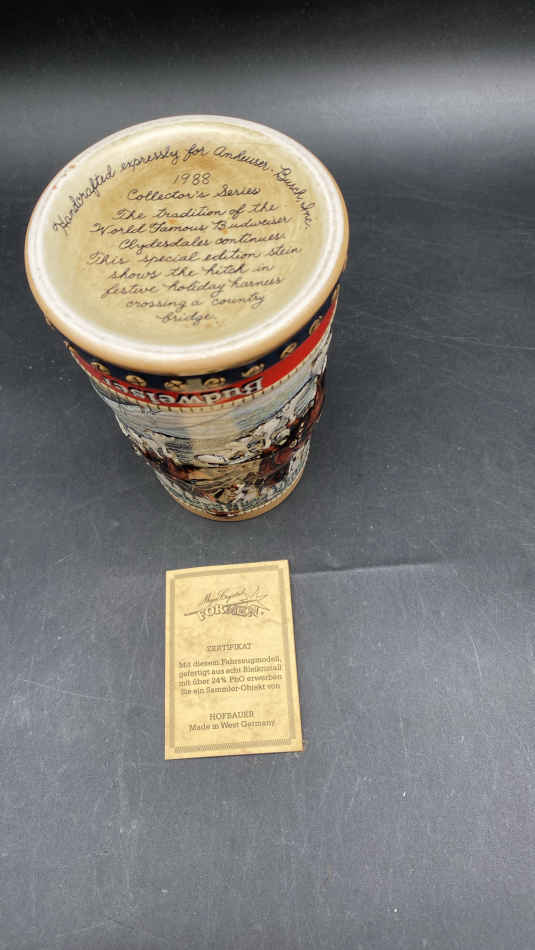 Handcrafted expressly for Anheuser-Busch, Inc.
1988
Collector's Series
The tradition of the
World Famous Budweiser
Clydesdales continues.
This special edition stein
shows the hitch in
festive holiday harness
crossing a country
bridge.
Budweiser
Budweiser
ZERTIFIKAT
Mit diesem Fahrzeugmodell,
gefertigt aus echt Bleikristall
mit über 24% PbO erwerben
Sie ein Sammler-Objekt von
HOFBAUER
Made in West Germany